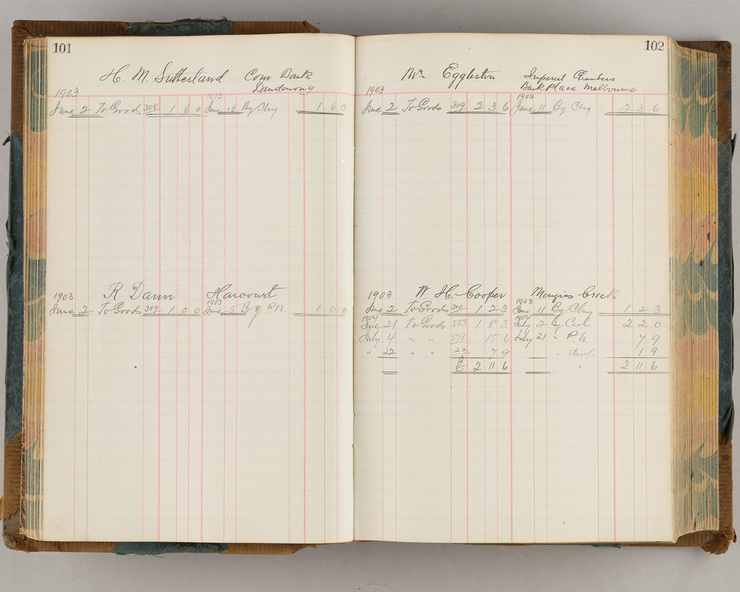 101
H. M. Sutherland Com Bank
Dandenong
1903 1903
June 2 To Goods 308 1 6 0 June 16 By Chq 1 6 0
1903 R Dann Harcourt
1903
June 2 To Goods 309 1 0 0 June 5 By P.N. 1 0 0
102
Mr Eggleston Imperial Chambers
Bank Place Melbourne
1903 1903
June 2 To Goods 309 2 3 6 June 11 By Chq 2 3 6
1903 W. H. Cooper Creek
1903
June 2 To Goods 1 2 3 June 11 By Chq 1 2 3
1904 1904
June 21 To Goods 553 1 8 3 July 2 By Cash 2 2 0
July 4 " " 573 15 6 July 21 " P.N. 7 9
" 22 " " 22 7 9 " 1 9
2 11 6 2 11 6